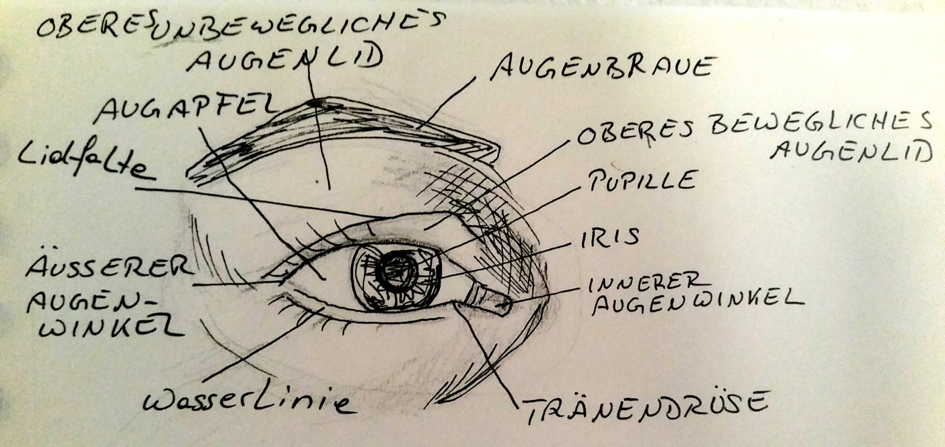 OBERES UNBEWEGLICHES
AUGENLID
AUGENBRAUE
AUGAPFEL
OBERES BEWEGLICHES
AUGENLID
Lidfalte
PUPILLE
IRIS
ÄUSSERER
AUGEN-
WINKEL
INNERER
AUGENWINKEL
WasserLinie
TRÄNENDRÜSE